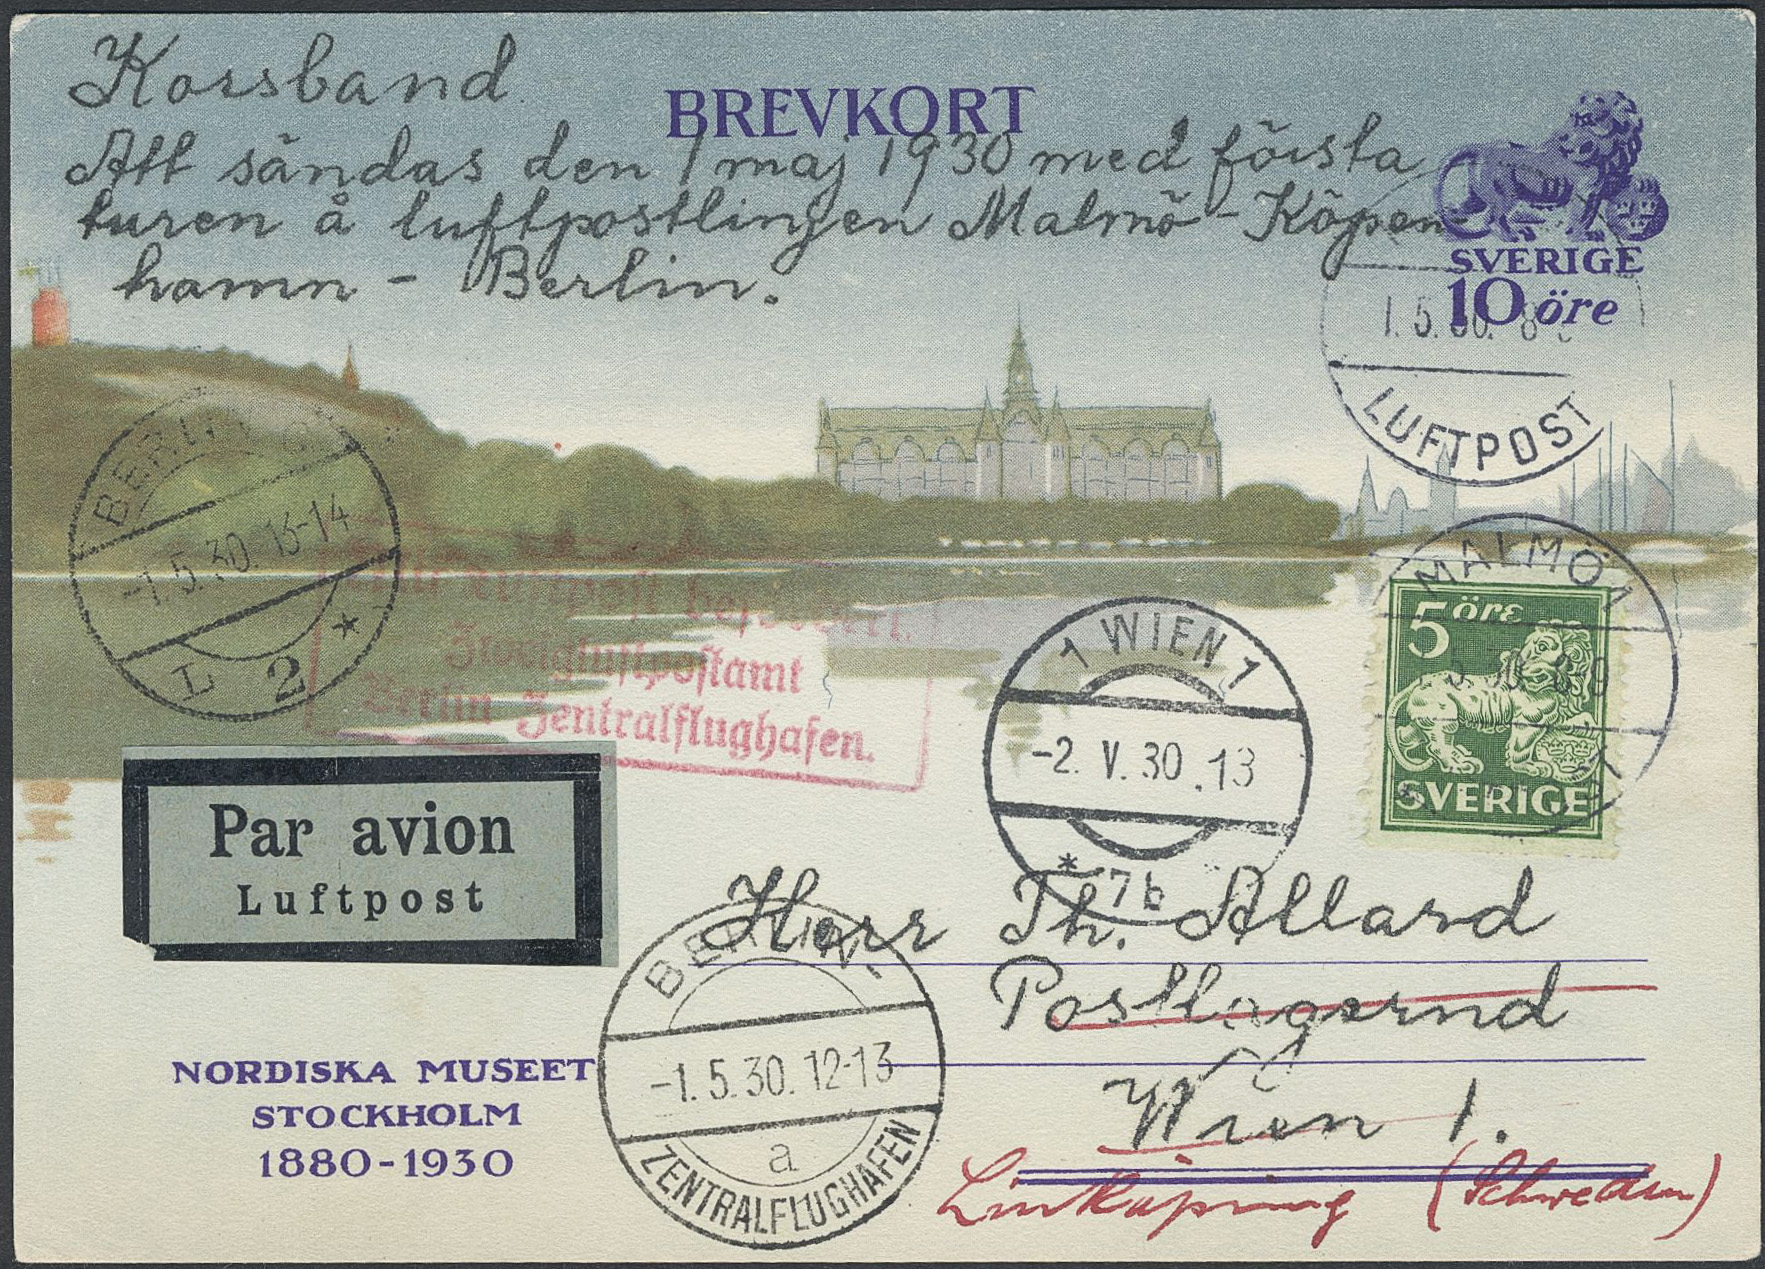 Korsband
BREVKORT
Att sändas den 1 maj 1930 med första
turen å luftpostlinjen Malmö - Köpen
hamn - Berlin.
SVERIGE
10 öre
1.5.30. 8
LUFTPOST
BERLIN C
-1.5.30. 13-14
L 2 *
MALMÖ 1
5 öre
SVERIGE
Mit Luftpost befördert.
Zweigluftpostamt
Berlin Zentralflughafen.
1 WIEN 1
-2. V. 30. 13
* 7b
Par avion
Luftpost
Herr Th. Allard
Postlagernd
Wien 1.
Linköping (Schweden)
BERLIN
-1.5.30. 12-13
a
ZENTRALFLUGHAFEN
NORDISKA MUSEET
STOCKHOLM
1880-1930